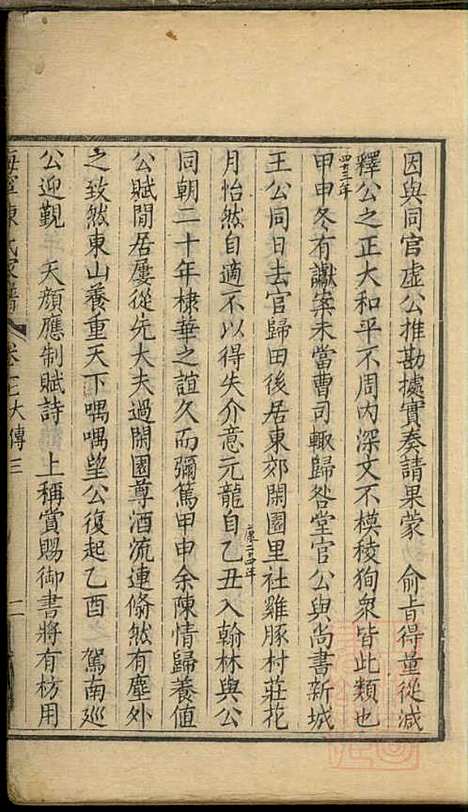 因與同官虛公推勘據實奏請果蒙　俞旨得量從減
釋公之正大和平不周內深文不模棱狥衆皆此類也
四十三年
甲申冬有讞案未當曹司輙歸咎堂官公與尚書新城
王公同日去官歸田後居東郊閑園里社雞豚村莊花
月怡然自適不以得失介意元龍自乙丑入翰林與公
同朝二十年棣華之誼久而彌篤甲申余陳情歸養值
公賦閒居屢從先大夫過閑園尊酒流連翛然有塵外
之致然東山養重天下喁喁望公復起乙酉　駕南巡
公迎覲　天顏應制賦詩　上稱賞賜御書將有枋用
海寧陳氏家譜　大傳三